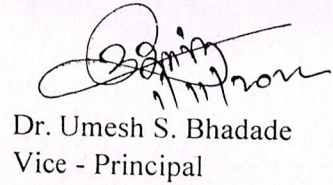 Dr. Umesh S. Bhadade
Vice - Principal